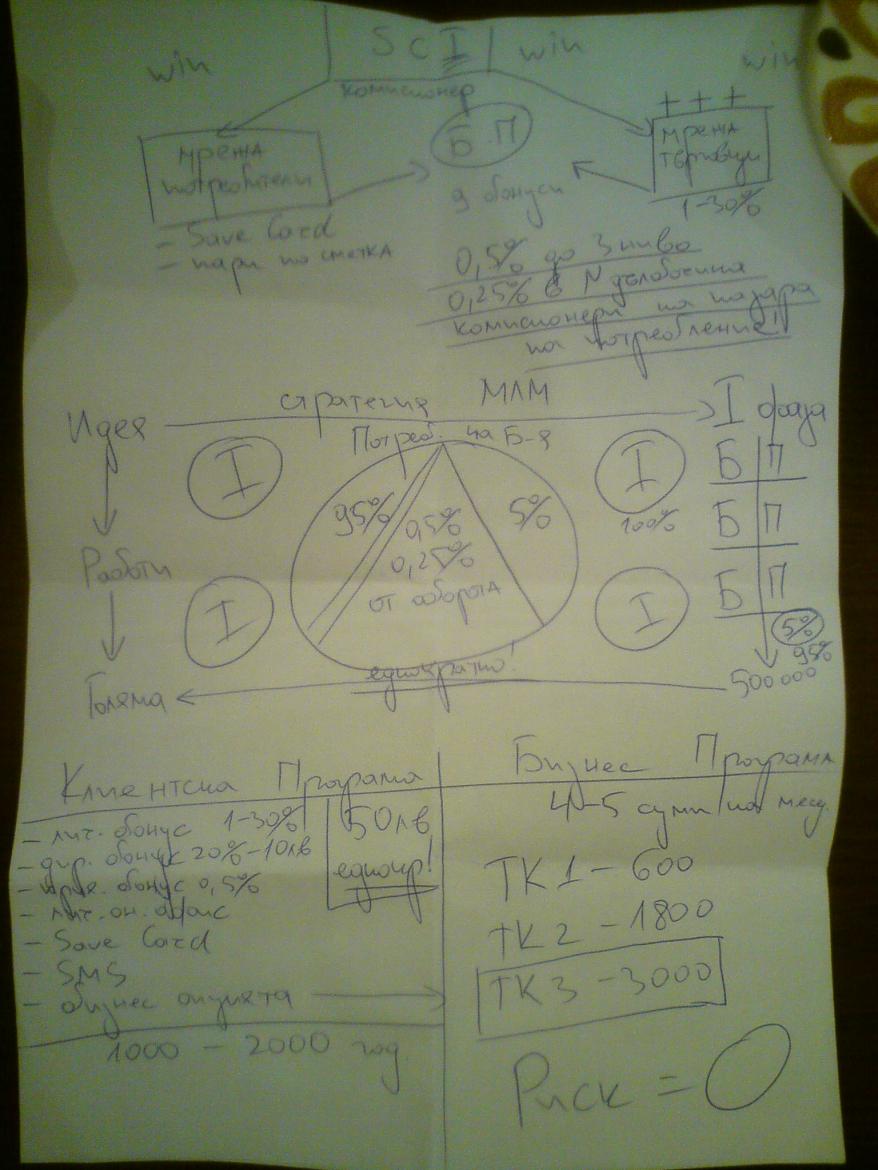 win
Sc I
win
win
комисионер
+ + +
мрежа
потребители
Б.П
мрежа
търговци
9 бонуси
1-30%
- Save Card
- пари по сметка
0,5% до 3 ниво
0,25% в N дълбочина
комисионери на пазара
на потребление!
Идея
стратегия МЛМ
I фаза
Потреб. на Б-я
I
I
100%
95%
0,5%
0,25%
от оборота
5%
Б П
Б П
Б П
Работи
I
I
5%
95%
500 000
еднократно!
Голяма
Клиентска Програма
Бизнес Програма
- лич. бонус 1-30%
- дир. бонус 20% - 10лв
- прия. бонус 0,5%
- лич. он. офис
- Save Card
- SMS
- бизнес опцията
50лв
еднокр!
1000 - 2000 год.
4-5 суми на месец
ТК1 - 600
ТК2 - 1800
ТК3 - 3000
Риск = 0